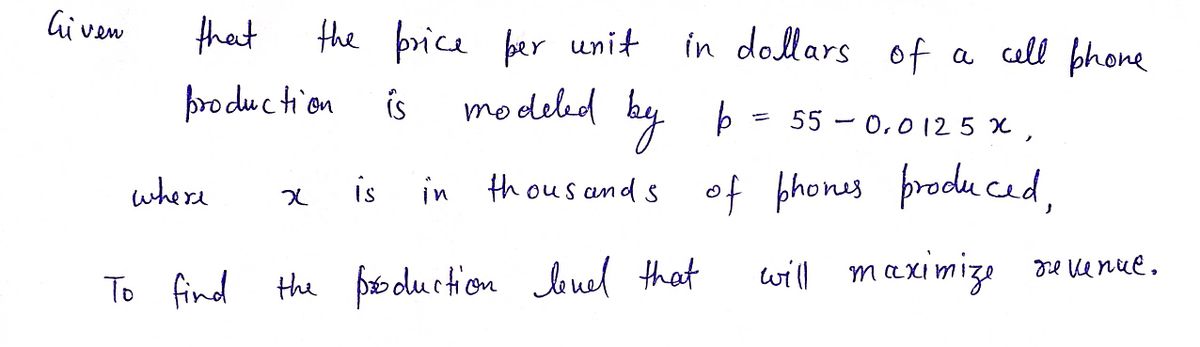 Given that the price per unit in dollars of a cell phone
production is modeled by p = 55 - 0.0125x,
where x is in thousands of phones produced,
To find the production level that will maximize revenue.